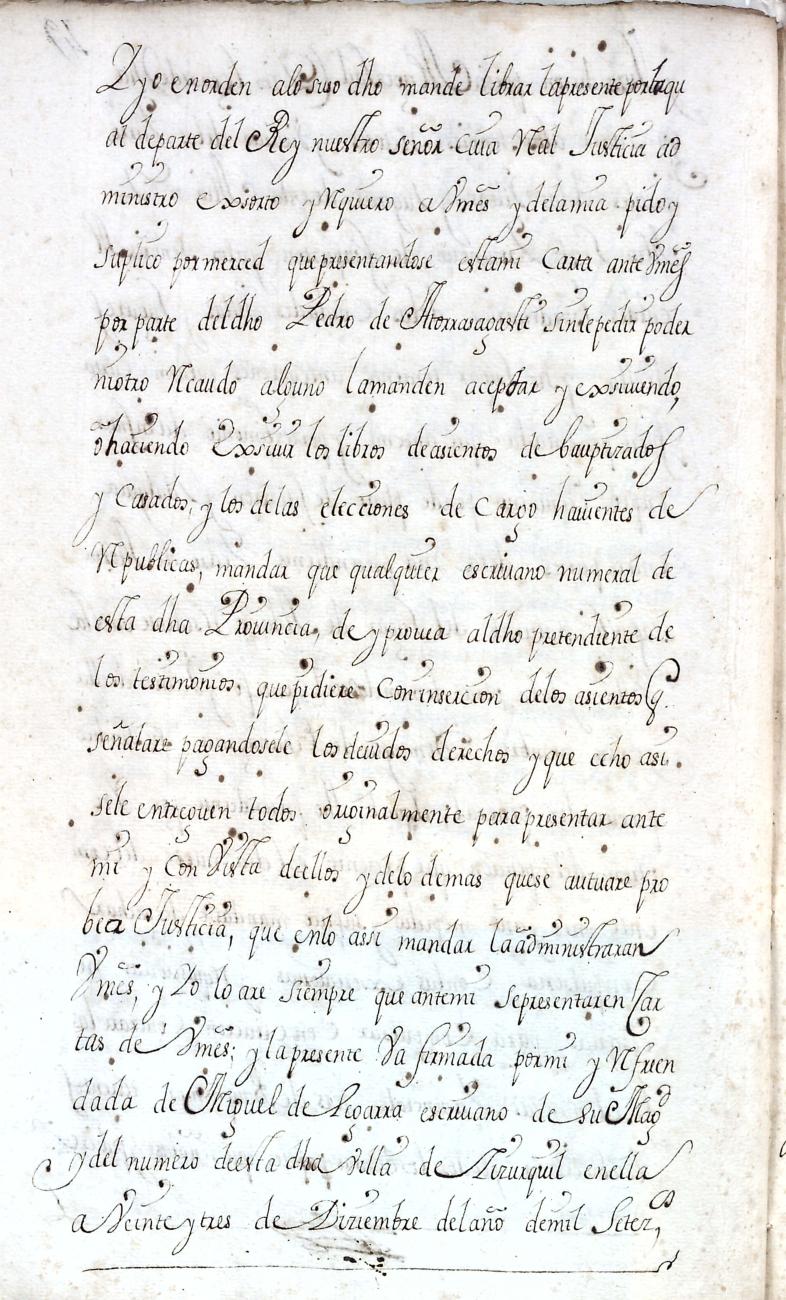 Yyo enorden alosuso dho mande librar lapresente porlaqu
al departe del Rey nuestro señor Cuia Rral Justicia ad
ministro exsorto y Rquiero a Vmēs y delamia pido y
suplico pormerced quepresentandose estami Carta ante Vmēs
por parte deldho Pedro de Atorrasagasti sinlepedir poder
niotro Rcaudo alguno lamanden aceptar y exsiuiendo,
ohaciendo Exsiuir los libros deasientos de bauptizados
y Casados, y los delas elecciones de Cargo hauientes de
Rpublicas, mandar que qualquier escriuano numeral de
esta dha Prouincia, de y prouea aldho pretendiente de
los testimonios quepidiere Coninsercion delos asientos q.
señalare pagandosele los deuidos derechos y que echo asi
sele entreguen todos originalmente para presentar ante
mi y Con Vista deellos y delo demas quese autuare pro
beer Justicia, que enlo assi mandar la administraran
Vmēs, y Yo lo are siempre que antemi sepresentaren Car
tas de Vmēs; y lapresente Va firmada pormi y Rfren
dada de Miguel de Legarra escriuano de su Magd
y del numero deesta dha Villa de Aizurquil enella
a Veinte y tres de Diziembre del año demil Setezs,